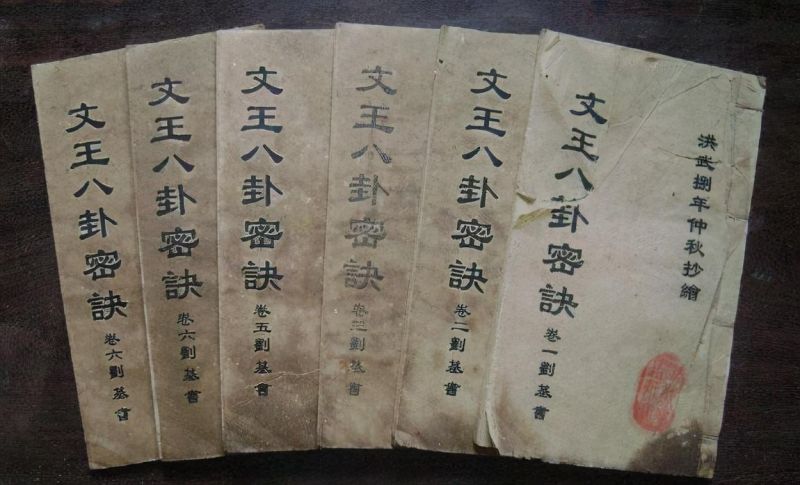 洪武捌年仲秋抄繪
文王八卦密訣 卷一劉基書
文王八卦密訣 卷二劉基書
文王八卦密訣 卷 劉基書
文王八卦密訣 卷五劉基書
文王八卦密訣 卷六劉基書
文王八卦密訣 卷六劉基書